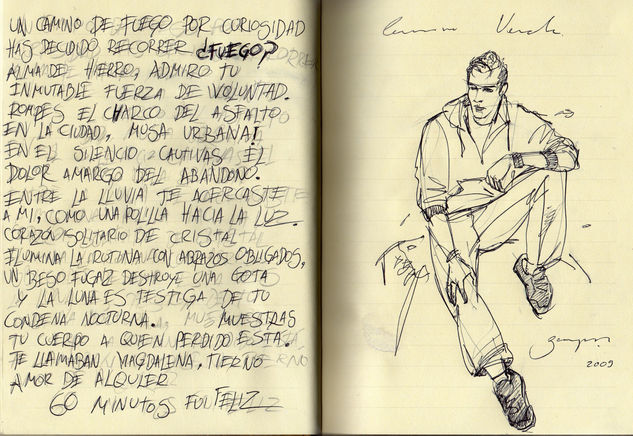 UN CAMINO DE FUEGO POR CURIOSIDAD
HAS DECIDIDO RECORRER ¿FUEGO?
ALMA DE HIERRO, ADMIRO TU
INMUTABLE FUERZA DE VOLUNTAD.
ROMPES EL CHARCO DEL ASFALTO
EN LA CIUDAD, MUSA URBANA!
EN EL SILENCIO CAUTIVAS EL
DOLOR AMARGO DEL ABANDONO.
ENTRE LA LLUVIA TE ACERCASTE
A MI, COMO UNA POLILLA HACIA LA LUZ.
CORAZÓN SOLITARIO DE CRISTAL
ILUMINA LA RUTINA CON ABRAZOS OBLIGADOS,
UN BESO FUGAZ DESTROYE UNA GOTA
Y LA LUNA ES TESTIGA DE TU
CONDENA NOCTURNA. MUESTRAS
TU CUERPO A QUIEN PERDIDO ESTA.
TE LLAMABAN MAGDALENA, TIERNO
AMOR DE ALQUILER
60 MINUTOS FUI FELIZ
2009